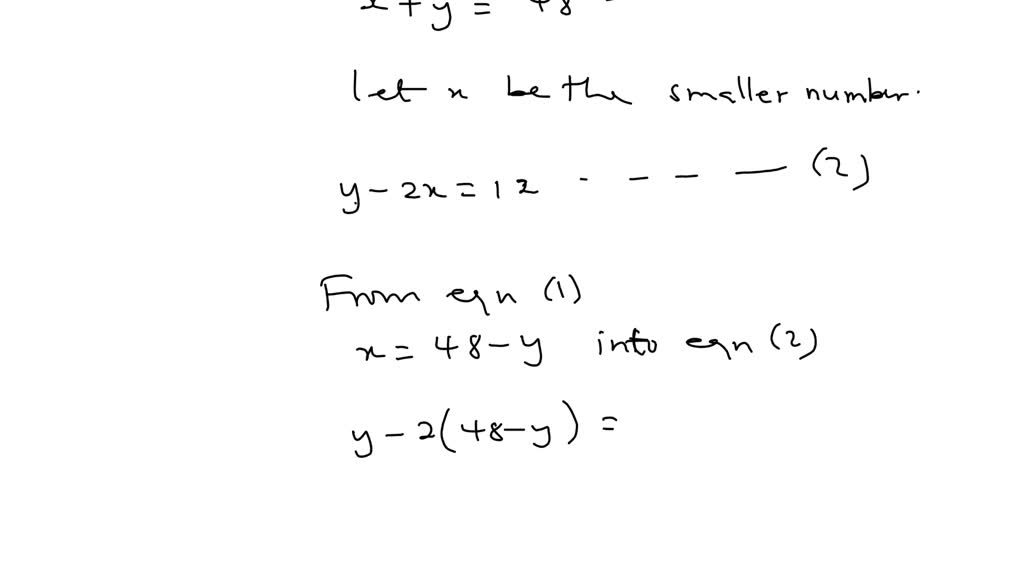 x + y = 48 -
let x be the smaller number.
y - 2x = 12 - - - — (2)
From eqn (1)
x = 48 - y into eqn (2)
y - 2(48 - y) =